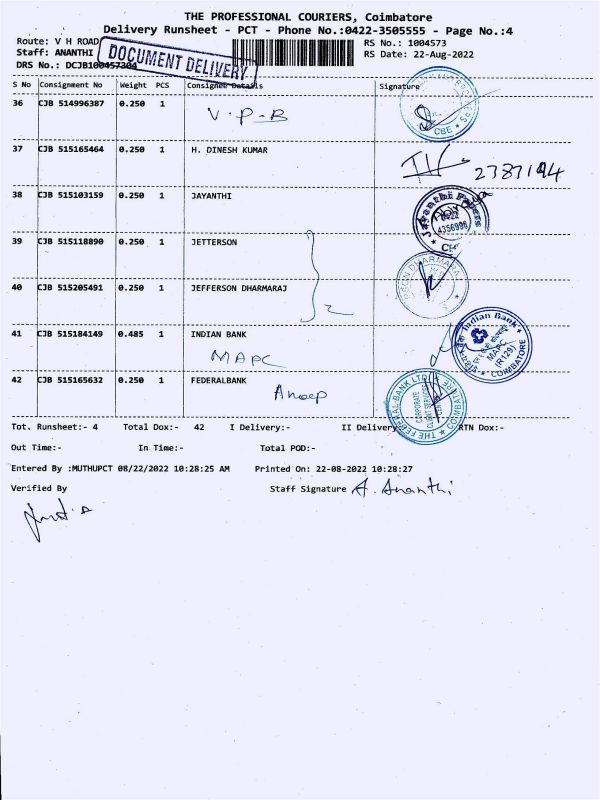 THE PROFESSIONAL COURIERS, Coimbatore
Delivery Runsheet - PCT - Phone No.:0422-3505555 - Page No.:4
Route: V H ROAD
RS No.: 1004573
Staff: ANANTHI
RS Date: 22-Aug-2022
DRS No.: DCJB100457304
DOCUMENT DELIVERY
S No Consignment No Weight PCS Consignee Details Signature
36 CJB 514996387 0.250 1
V.P.B
CBE
37 CJB 515165464 0.250 1 H. DINESH KUMAR
2787194
38 CJB 515103159 0.250 1 JAYANTHI
Jayanthi Papers
4356996
39 CJB 515118890 0.250 1 JETTERSON
40 CJB 515205491 0.250 1 JEFFERSON DHARMARAJ
2
SON DHARMARA
41 CJB 515184149 0.485 1 INDIAN BANK
MAPC
Indian Bank
MAPC
(R129)
COIMBATORE
42 CJB 515165632 0.250 1 FEDERALBANK
Anoop
THE FEDERAL-BANK LTD
CORPORATE
CLIENT SERVICES
COIMBATORE
Tot. Runsheet:- 4 Total Dox:- 42 I Delivery:- II Delivery RTN Dox:-
Out Time:- In Time:- Total POD:-
Entered By :MUTHUPCT 08/22/2022 10:28:25 AM Printed On: 22-08-2022 10:28:27
Verified By Staff Signature A. Ananthi